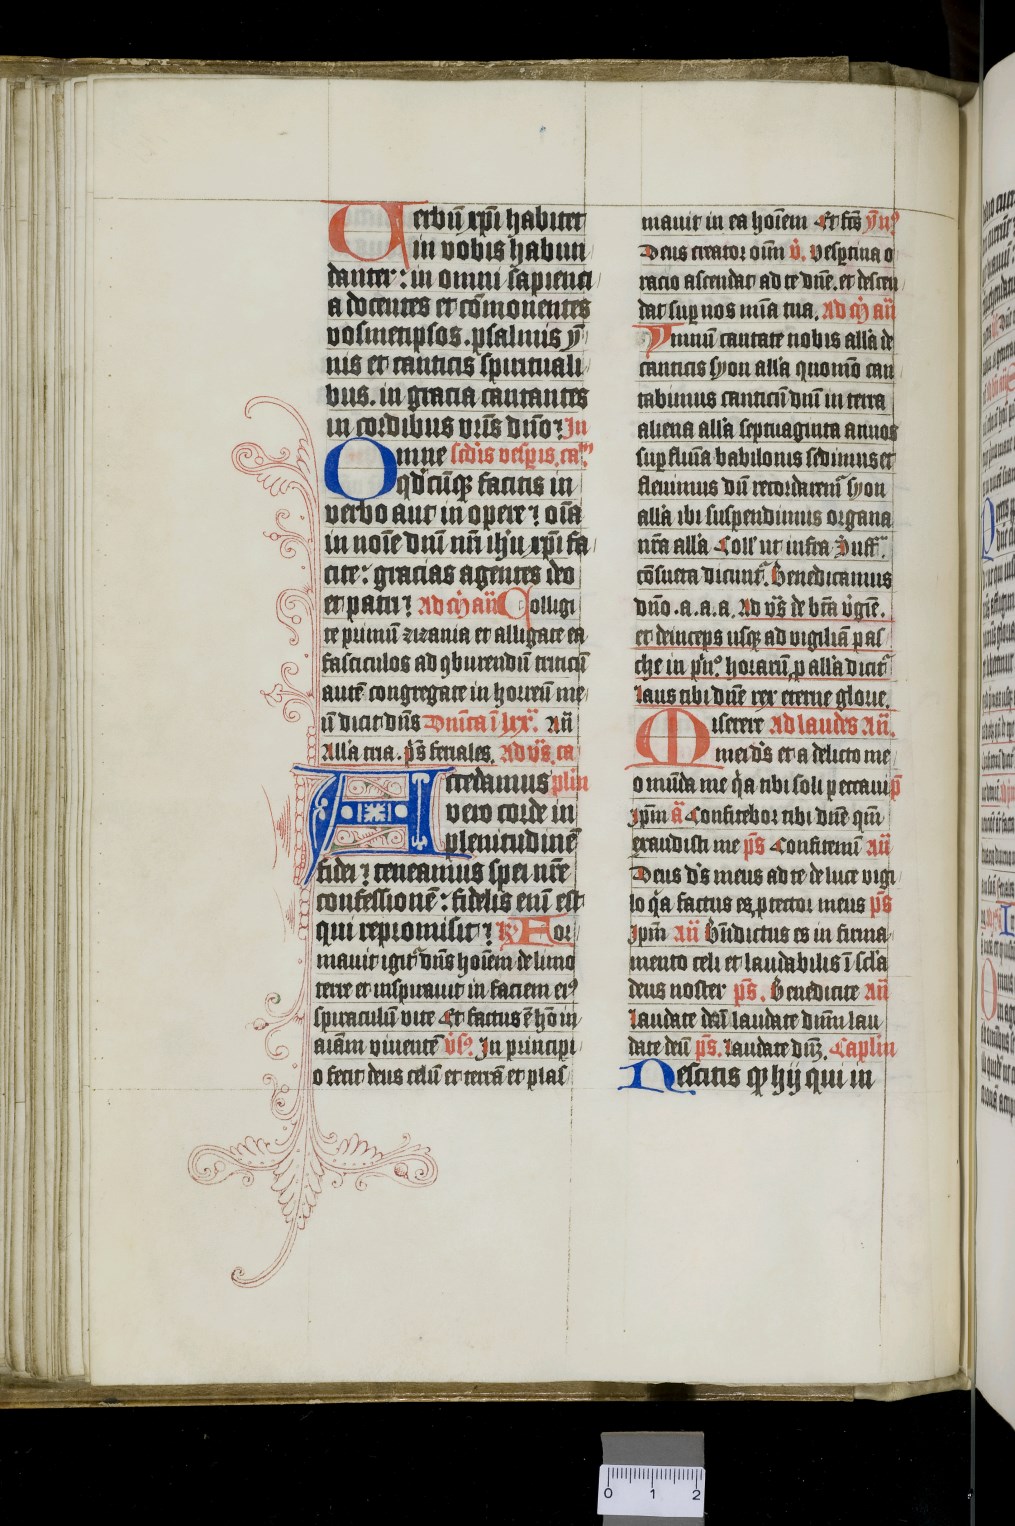 Uerbū xpī habitet
in vobis habun
danter: in omni sapienti
a docentes et cōmonentes
vosmetipsos. psalmis ẏm
nis et canticis spirituali
bus. in gracia cantantes
in cordibus vr̄is dn̄o: In
Omne scd̓is vesp̲is. ca.
qd̓cūq̃ facitis in
verbo aut in opere: oīa
in noīe dn̄i nr̄i ih̓u xp̄i fa
cite: gracias agentes deo
et patri: Ad m̄ añ Colligi
te primū zizania et alligate ea
fasciculos ad ꝯburendū triticū
autē congregate in horreū me
ū dicit dn̄s Dn̄ica ī lxx. Añ
Alla tria. p̄s feriales. Ad v̄s. ca
Accedamus plm
vero corde in
plenitudinē
fidei: teneamus spei nr̄e
confessionē: fidelis enī est
qui repromisit: R For
mauit igit̓ dn̄s hoīem de limo
terre et inspirauit in faciem eiꝰ
spiraculū vite Et factus ē hō in
aīam viuentē v̓sꝰ. In principi
o fecit deus celū et terrā et plas
mauit in ea hoīem Et fc̄s ẏm̄ꝰ
Deus creator oīm v̓. Vesp̲tina o
racio ascendat ad te dn̄e. et descen
dat sup̲ nos mīa tua. Ad m̄ añ
Ymnū cantate nobis alla de
canticis syon alla quomō can
tabimus canticū dn̄i in terra
aliena alla septuaginta annos
sup̲ flumīa babilonis sedimus et
fleuimus dū recordaremᷓ syon
alla ibi suspendimus organa
nr̄a alla Coll̓ ut infra Suff̓.
cōsueta dicunt̓. Benedicamus
dn̄o .a. a. a. Ad v̄s de bt̄a v̓gīe.
et deinceps usq̃ ad vigiliā pas
che in p̓nꝰ horarū p̲ alla dicit̓
Laus tibi dn̄e rex eterne glorie.
Miserere Ad laudes Añ.
mei d̓s et a delicto me
o mūda me q̓a tibi soli peccaui p̄
Ipm̄ ā Confitebor tibi dn̄e qm̄
exaudisti me p̄s Confitemī añ
Deus d̓s meus ad te de luce vigi
lo q̓a factus es ꝓtector meus p̄s
Ipm̄ añ Bn̄dictus es in firma
mento celi et laudabilis ī scl̓a
deus noster p̄s. Benedicite añ
Laudate deū laudate dn̄m lau
date deū p̄s. Laudate dn̄ȝ. Caplm
Nescitis ꝙ hij qui in